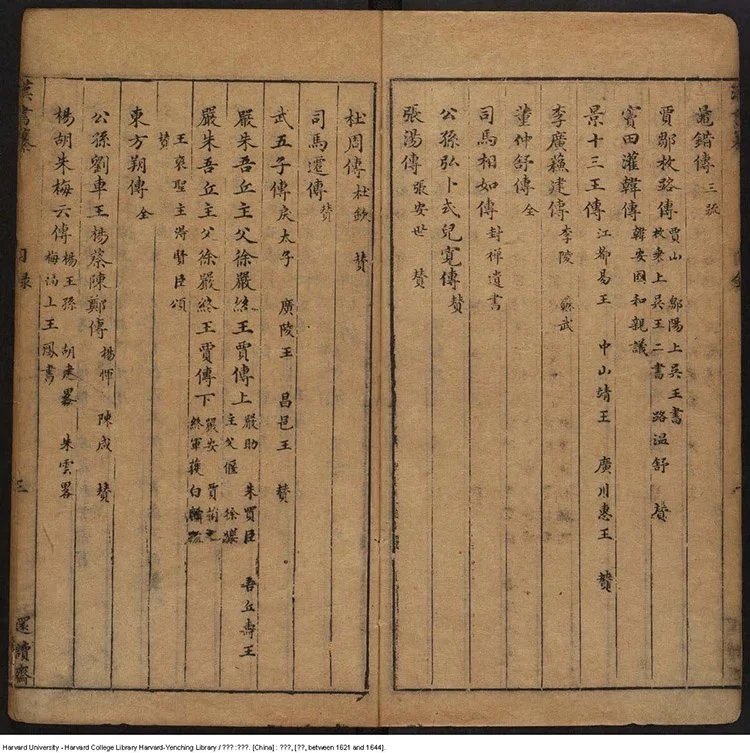 鼂錯傳 三張
賈鄒枚路傳 賈山 鄒陽上吳王書 枚乘上吳王二書 路溫舒 贊
竇田灌韓傳 韓安國和親議
景十三王傳 江都易王 中山靖王 廣川惠王 贊
李廣蘇建傳 李陵 蘇武
董仲舒傳 全
司馬相如傳 封禪遺書
公孫弘卜式兒寬傳 贊
張湯傳 張安世 贊
杜周傳 杜欽 贊
司馬遷傳 贊
武五子傳 戾太子 廣陵王 昌邑王 贊
嚴朱吾丘主父徐嚴終王賈傳上 嚴助 朱買臣 吾丘壽王 主父偃 徐樂
嚴朱吾丘主父徐嚴終王賈傳下 嚴安 賈捐之 終軍獲白麟
王褒聖主得賢臣頌
贊
東方朔傳 全
公孫劉車王楊蔡陳鄭傳 楊惲 陳咸 贊
楊胡朱梅云傳 楊王孫 胡建畧 朱雲畧 梅福上王鳳書
漢書纂
目錄
三
還讀齋
Harvard University - Harvard College Library Harvard-Yenching Library / ??? :???. [China] : ???, [??, between 1621 and 1644].